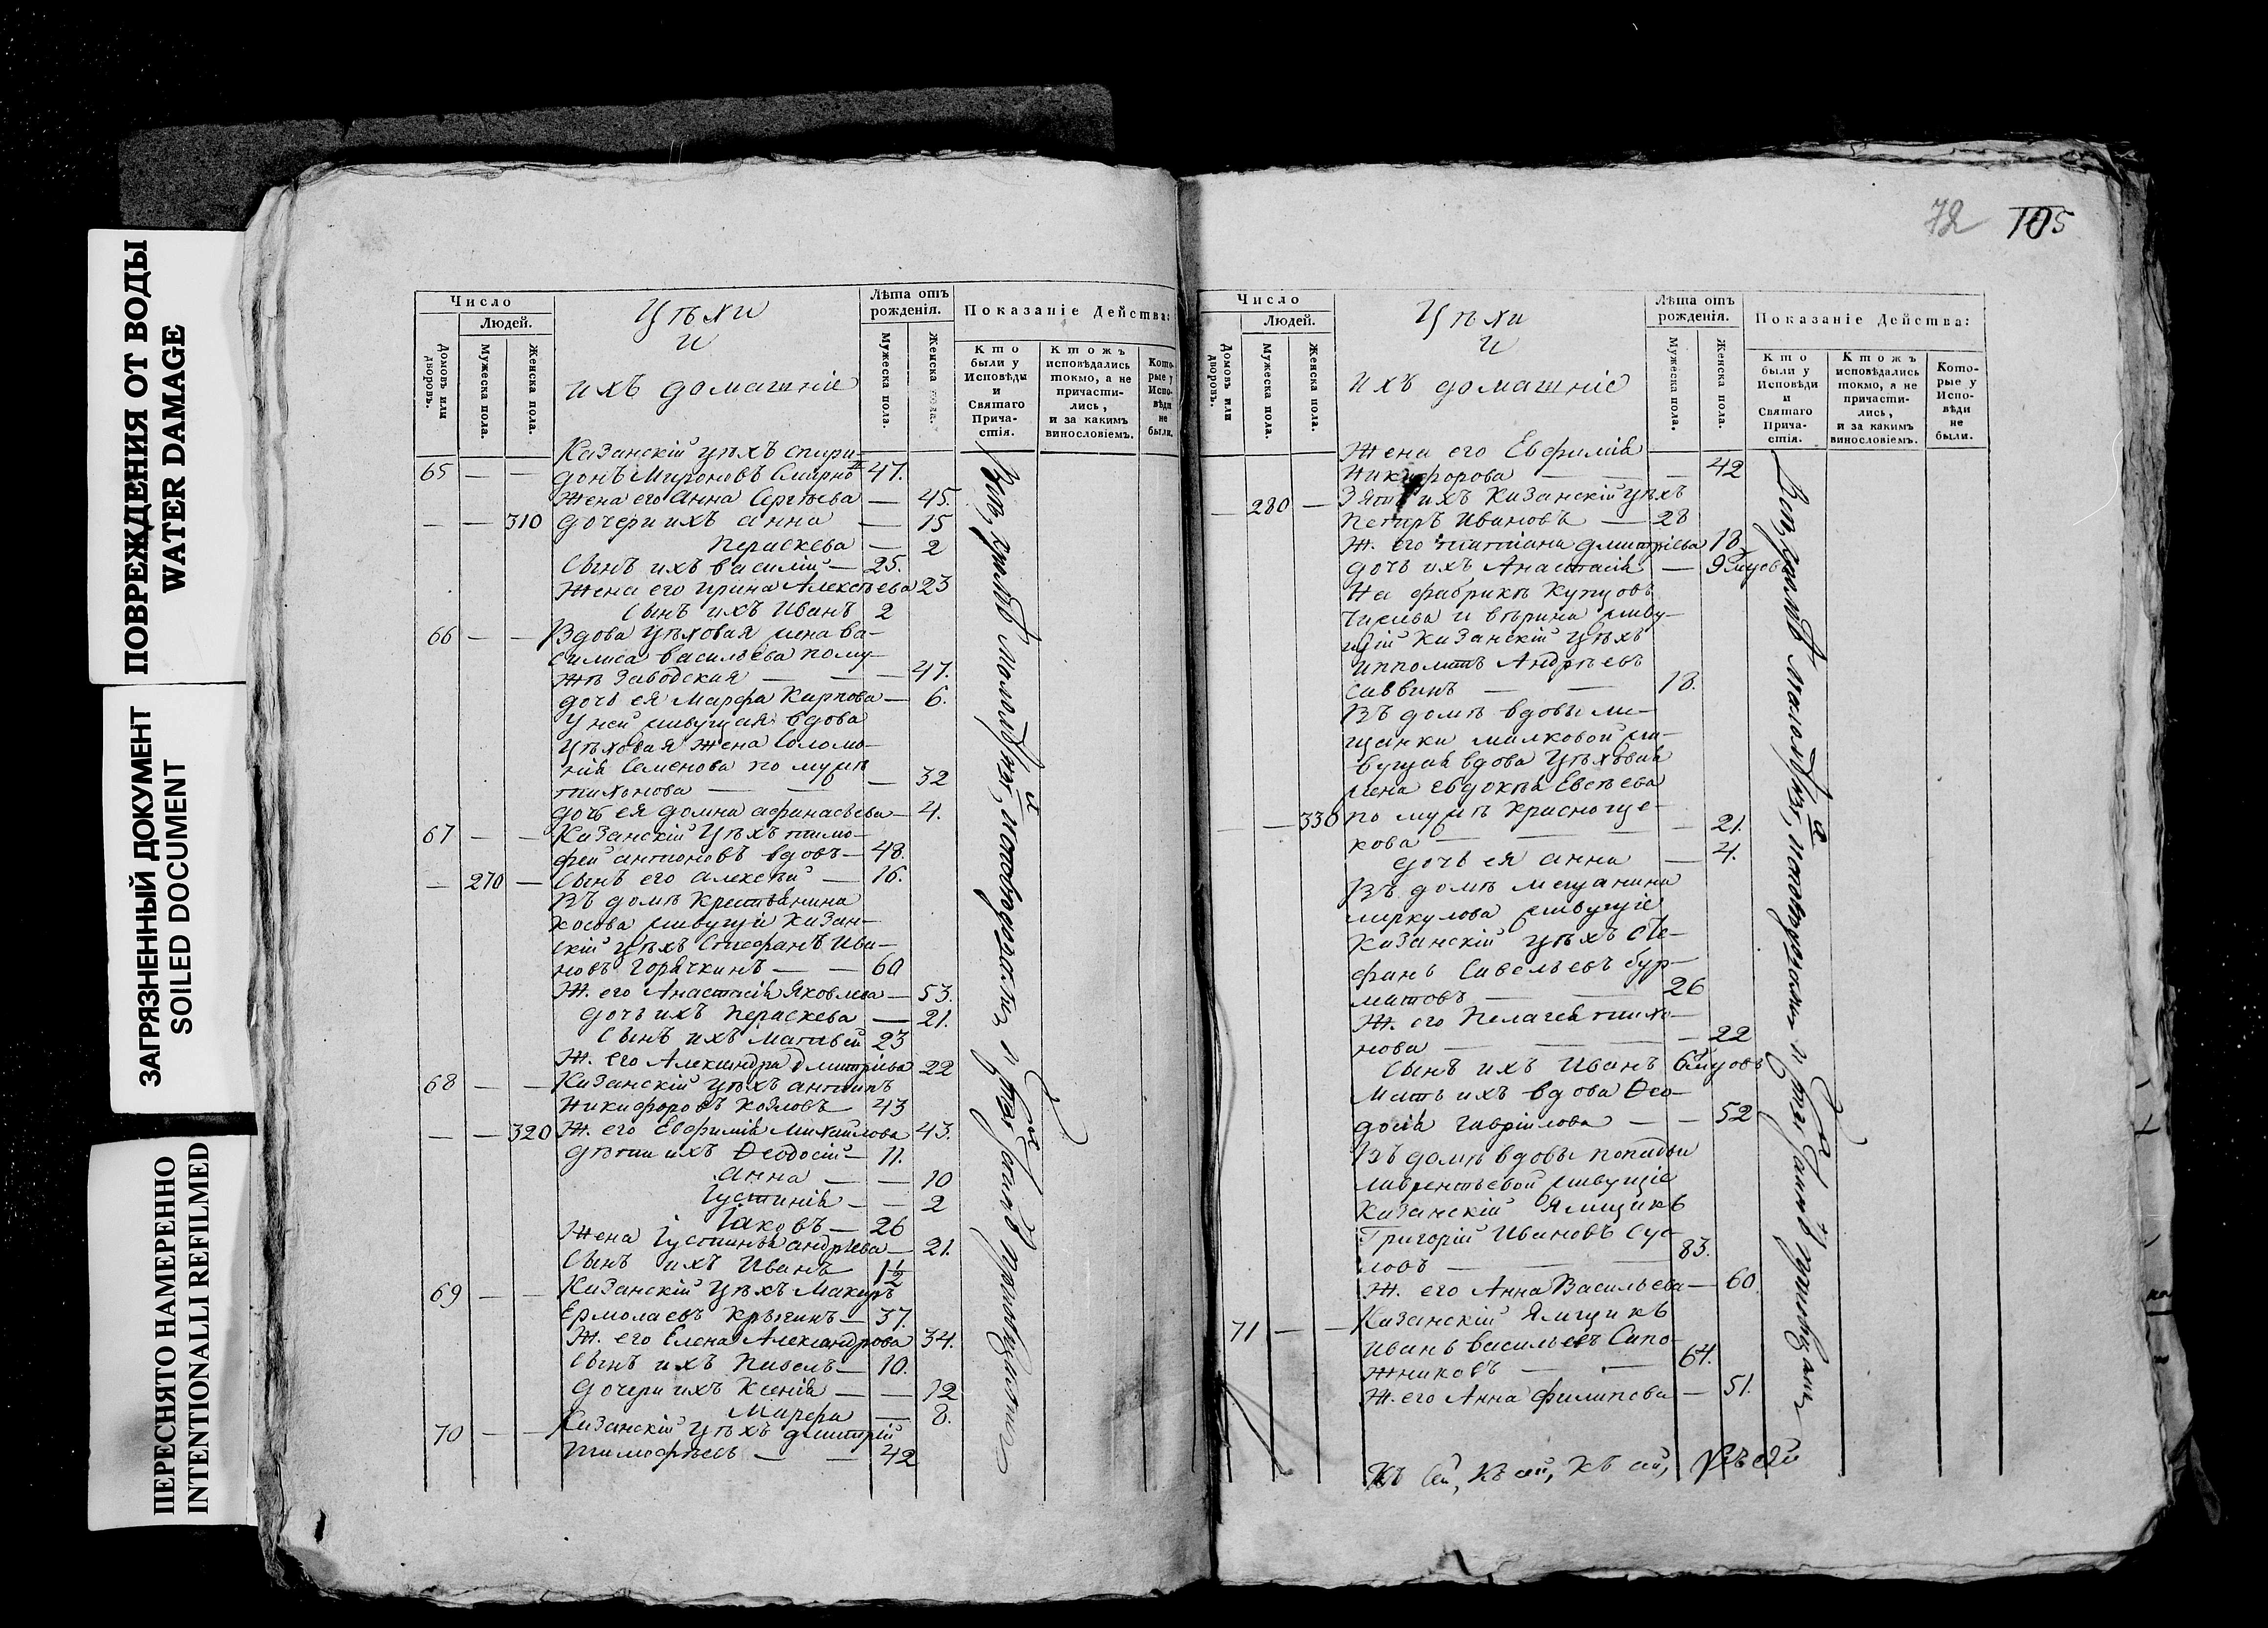 ПОВРЕЖДЕНИЯ ОТ ВОДЫ
WATER DAMAGE
ЗАГРЯЗНЕННЫЙ ДОКУМЕНТ
SOILED DOCUMENT
ПЕРЕСНЯТО НАМЕРЕННО
INTENTIONALLI REFILMED
Число
Людей.
Домовъ или дворовъ.
Мужеска пола.
Женска пола.
Цѣхи
и
ихъ домашніе
Лѣта отъ рожденія.
Мужеска пола.
Женска пола.
Показаніе Действа:
Кто были у Исповѣди и Святаго Причастія.
Ктожъ исповѣдались токмо, а не причастились, и за какимъ винословіемъ.
Которые у Исповѣди не были.
Казанскій цѣхъ Спири-
65 — — донъ Мироновъ Смирно 47.
Жена его Анна Сергѣева — 45.
— — 310 дочери ихъ Анна — 15
Параскева — 2
Сынъ ихъ Василій — 25.
Жена его Ирина Алексѣева 23
Сынъ ихъ Иванъ 2
66 — — Вдова цѣховая жена Ва-
силиса Васильева по му-
жѣ Заводская — — 47.
дочь ея Марфа Карпова — 6.
У ней живущая вдова
цѣховая жена Соломо-
нія Семенова по мужѣ
Тихонова — — 32
дочь ея Домна Афанасьева — 4.
67 — — Казанскій цѣхъ Тимо-
фей Антоновъ вдовъ — 48.
— 270 — Сынъ его Алексѣй — 16.
Въ домѣ крестьянина
Косова живущи Казан-
скій цѣхъ Стефанъ Ива-
новъ Горячкинъ — — 60
Ж. его Анастасія Яковлева — 53.
дочь ихъ Параскева — 21.
Сынъ ихъ Матвей 23
Ж. его Александра Дмитріева 22
68 — — Казанскій цѣхъ Антипъ
Никифоровъ Козловъ 43
— — 320 Ж. его Евфимія Михайлова 43.
дѣти ихъ Ѳеодосій — 11.
Анна — — 10
Іустинія — — 2
Іаковъ — 26
Жена Іустинья Андреева — 21.
Сынъ ихъ Иванъ 1½
69 — — Казанскій цѣхъ Макаръ
Ермолаевъ — 37.
Ж. его Елена Александрова 34.
Сынъ ихъ Павелъ — 10.
дочери ихъ Ксенія — — 12
Марфа — 8.
70 — — Казанскій цѣхъ Дмитрій
Тимофѣевъ — — 42
72 105
Число
Людей.
Домовъ или дворовъ.
Мужеска пола.
Женска пола.
Цѣхи
и
ихъ домашніе
Лѣта отъ рожденія.
Мужеска пола.
Женска пола.
Показаніе Действа:
Кто были у Исповѣди и Святаго Причастія.
Ктожъ исповѣдались токмо, а не причастились, и за какимъ винословіемъ.
Которые у Исповѣди не были.
Жена его Евфимія
Никифорова — 42
— 280 — Зять ихъ Казанскій цѣхъ
Петръ Ивановъ — 28
Ж. его Татіана Дмитріева 18
дочь ихъ Анастасія — 9
На фабрикѣ купцовъ
живу-
щій Казанскій цѣхъ
Ипполитъ Андреевъ
Саввинъ — — 18.
Въ домѣ вдовы мѣ-
щанки Милковой жи-
вущая вдова цѣховая
жена Евдокѣя Евсѣева
— — 330 по мужѣ Красноще-
кова — — 21.
дочь ея Анна — 4.
Въ домѣ мещанина
Меркулова живущіе
Казанскій цѣхъ Сте-
фанъ Савельевъ Бур-
матовъ — — 26
Ж. его Пелагея Тихо-
нова — — 22
Сынъ ихъ Иванъ 6
Мать ихъ вдова Ѳео-
досія Гаврилова — — 52
Въ домѣ вдовы попадьи
Лаврентьевой живущіе
Казанскій Ямщикъ
Григорій Ивановъ Сус-
ловъ — — 83.
Ж. его Анна Васильева — 60.
Казанскій Ямщикъ
71 — — Иванъ Васильевъ Сапо-
жниковъ — — 64.
Ж. его Анна Филипова — 51.